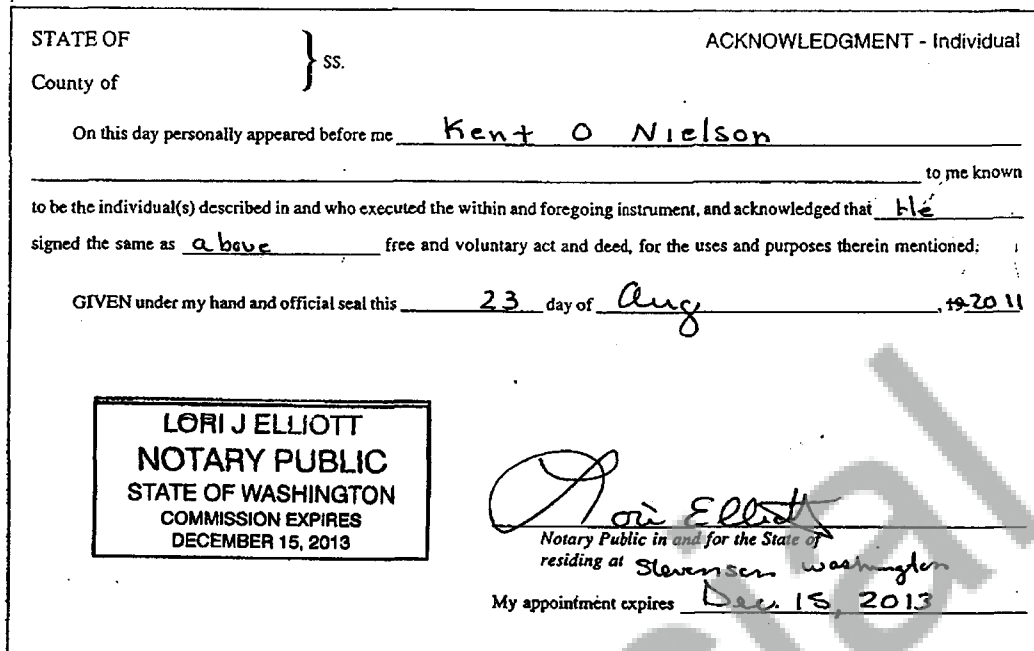 STATE OF
ACKNOWLEDGMENT - Individual
SS.
County of
On this day personally appeared before me Kent O Nielson
to me known
to be the individual(s) described in and who executed the within and foregoing instrument, and acknowledged that He
signed the same as above free and voluntary act and deed, for the uses and purposes therein mentioned;
GIVEN under my hand and official seal this 23 day of Aug , 19 2011
LORI J ELLIOTT
NOTARY PUBLIC
STATE OF WASHINGTON
COMMISSION EXPIRES
DECEMBER 15, 2013
Lori Elliott
Notary Public in and for the State of
residing at Stevenson Washington
My appointment expires Dec. 15, 2013